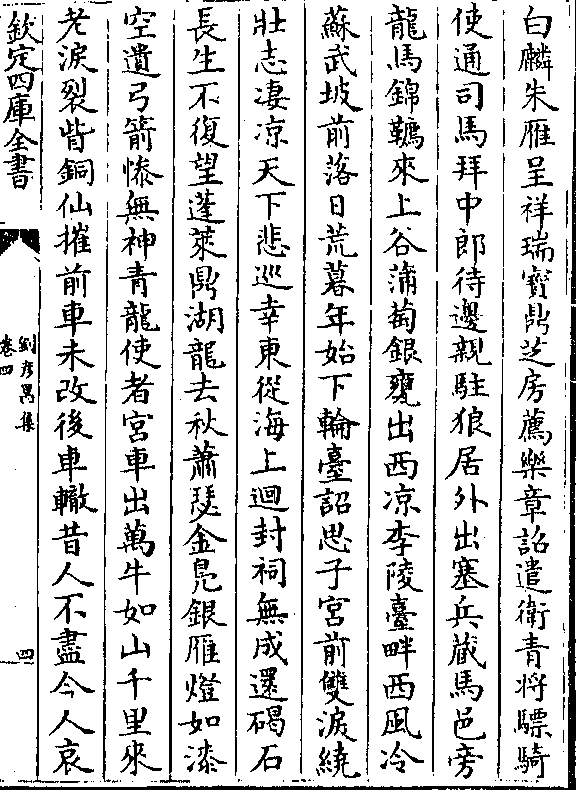 白麟朱雁呈祥瑞寳鼎芝房薦樂章詔遣衛青将驃騎
使通司馬拜中郎待邊親駐狼居外出塞兵蔵馬邑旁
龍馬錦韉來上谷蒲萄銀甕出西凉李陵臺畔西風冷
蘇武坡前落日荒暮年始下輪臺詔思子宫前雙淚繞
壯志凄凉天下悲巡幸東從海上迴封祠無成還碣石
長生不復望蓬萊鼎湖龍去秋蕭瑟金鳬銀雁燈如漆
空遺弓箭慘無神青龍使者宮車出萬牛如山千里來
老淚裂眥銅仙摧前車未改後車轍昔人不盡今人哀
欽定四庫全書
劉彦昺集
卷四
四